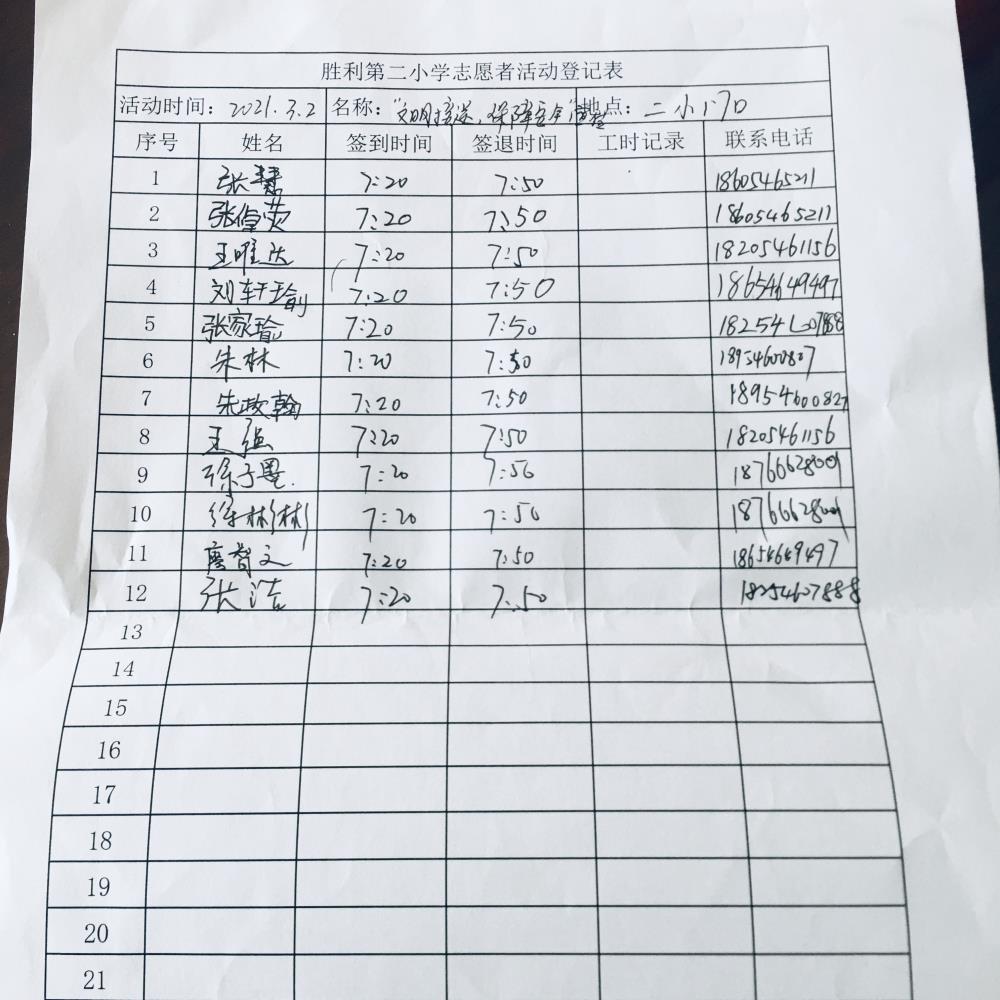 胜利第二小学志愿者活动登记表
活动时间：2021.3.2 名称："文明接送，保障安全"执勤 地点：二小门口
序号 姓名 签到时间 签退时间 工时记录 联系电话
1 张慧 7:20 7:50 18605465211
2 张 7:20 7:50 18605465211
3 王唯达 7:20 7:50 18205461156
4 刘轩瑜 7:20 7:50 18654649497
5 张家瑜 7:20 7:50
6 朱林 7:20 7:50 18954600827
7 朱政翰 7:20 7:50 18954600827
8 王强 7:20 7:50 18205461156
9 徐子墨 7:20 7:50 18766628009
10 徐彬彬 7:20 7:50 18766628009
11 唐智文 7:20 7:50 18654649497
12 张浩 7:20 7:50 18254607888
13
14
15
16
17
18
19
20
21